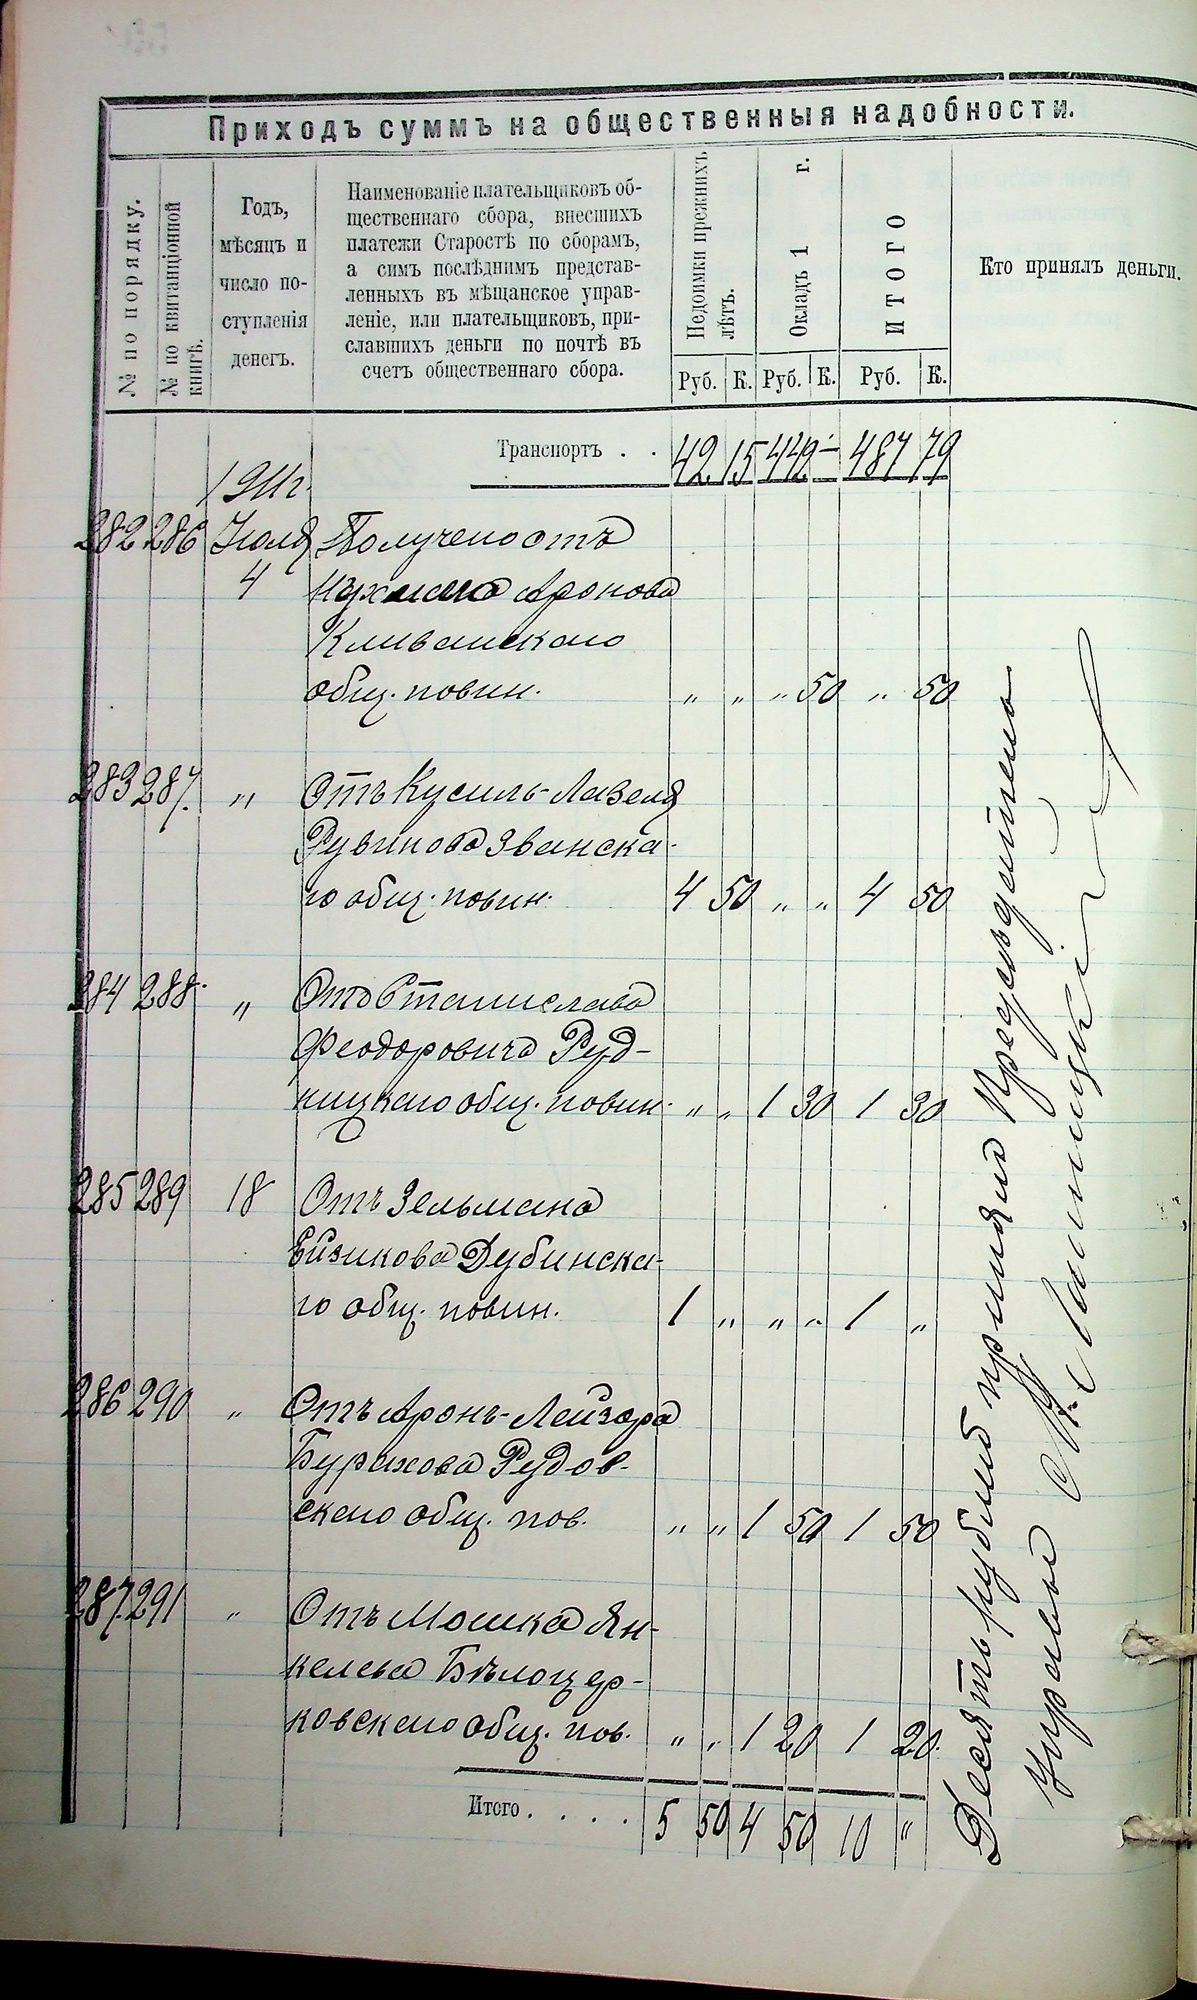 Приходъ суммъ на общественныя надобности.
№ по порядку.
№ по квитанціонной
книгѣ.
Годъ,
мѣсяцъ и
число по-
ступленія
денегъ.
Наименованіе плательщиковъ об-
щественнаго сбора, внесшихъ
платежи Старостѣ по сборамъ,
а симъ послѣднимъ представ-
ленныхъ въ мѣщанское управ-
леніе, или плательщиковъ, при-
славшихъ деньги по почтѣ въ
счетъ общественнаго сбора.
Недоимки прежнихъ
лѣтъ.
Окладъ 1 г.
ИТОГО
Кто принялъ деньги.
Руб. К. Руб. К. Руб. К.
Транспортъ . . 42 15 442 - 487 79
1911 г.
282 286 Іюля Получено отъ
4 Нухима Аронова
Кливанскаго
общ. повин. " " " 50 " 50
283 287. " Отъ Кусиль-Лавеля
Рувинова Званска-
го общ. повин. 4 50 " " 4 50
284 288. " Отъ Станислава
Феодоровича Руд-
ницкаго общ. повин. " " 1 30 1 30
285 289 18 Отъ Зельмана
Ейзикова Дубинска-
го общ. повин. 1 " " " 1 "
286 290 " Отъ Аронъ-Лейзора
Бурахова Рудов-
скаго общ. пов. " " 1 50 1 50
287. 291 " Отъ Мошка Ян-
келева Бѣлоцер-
ковскаго общ. пов. " " 1 20 1 20.
Итого . . . . . 5 50 4 50 10 "
Десять рублей принялъ Предсѣдатель
Управы